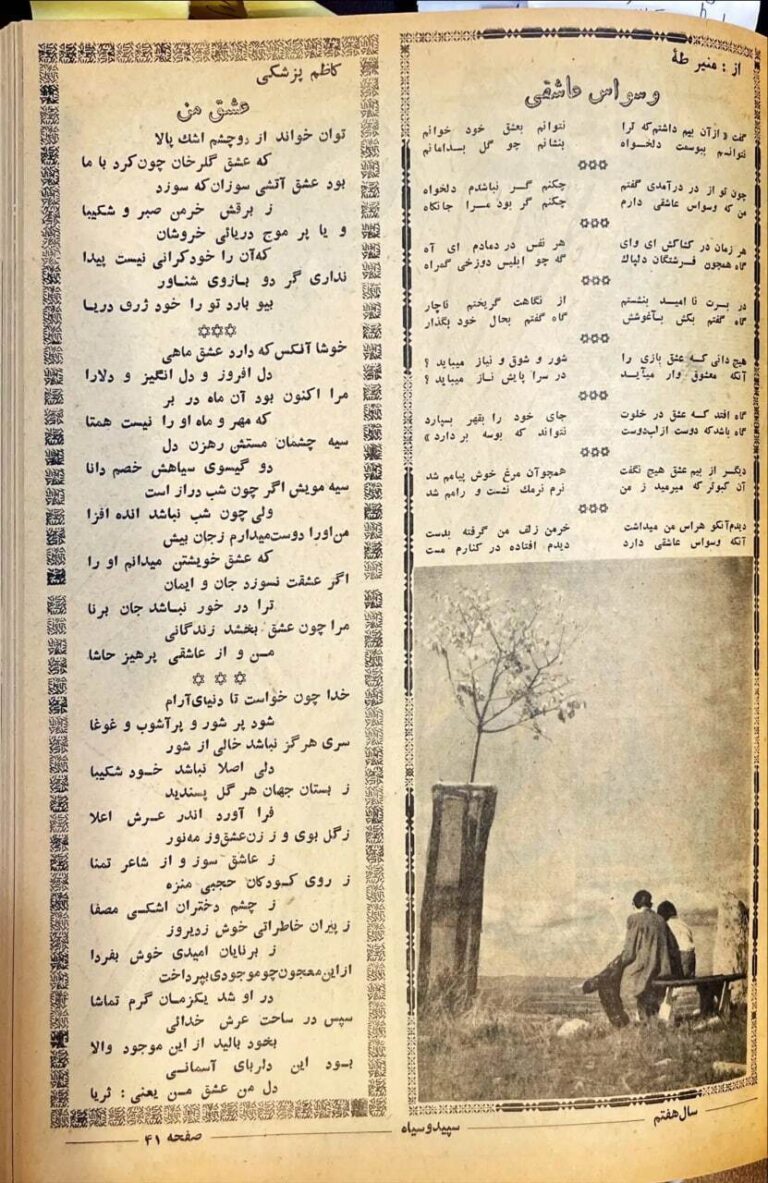 از : منیر طهٔ
وسواس عاشقی
گفت « از آن بیم داشتم که ترا    نتوانم بعشق خود خوانم
نتوانم ببوسمت دلخواه    بنشانم چو گل بدامانم
چون تو از در درآمدی گفتم    چکنم گر نباشدم دلخواه
من که وسواس عاشقی دارم    چکنم گر بود مرا جانکاه
هر زمان در کشاکش ای وای    هر نفس در دمادم ای آه
گاه همچون فرشتگان دلپاک    گه چو ابلیس دوزخی گمراه
در برت نا امید بنشستم    از نگاهت گریختم ناچار
گاه گفتم بکش بآغوشش    گاه گفتم بحال خود بگذار
هیچ دانی که عشق بازی را    شور و شوق و نیاز میباید ؟
آنکه معشوق وار میآید    در سرا پایش ناز میباید ؟
گاه افتد که عشق در خلوت    جای خود را بقهر بسپارد
گاه باشد که دوست از لب دوست    نتواند که بوسه بردارد »
دیگر از بیم عشق هیچ نگفت    همچو آن مرغ خوش پیامم شد
آن کبوتر که میرمید ز من    نرم نرمک نشست و رامم شد
دیدم آنکو هراس من میداشت    خرمن زلف من گرفته بدست
آنکه وسواس عاشقی دارد    دیدم افتاده در کنارم مست
کاظم پزشکی
عشق من
توان خواند از دوچشم اشک پالا
که عشق گلرخان چون کرد با ما
بود عشق آتشی سوزان که سوزد
ز برقش خرمن صبر و شکیبا
و یا پر موج دریائی خروشان
که آن را خود کرانی نیست پیدا
نداری گر دو بازوی شناور
بیو بارد تو را خود ژرف دریا
خوشا آنکس که دارد عشق ماهی
دل افروز و دل انگیز و دلارا
مرا اکنون بود آن ماه در بر
که مهر و ماه او را نیست همتا
سیه چشمان مستش رهزن دل
دو گیسوی سیاهش خصم دانا
سیه مویش اگر چون شب دراز است
ولی چون شب نباشد انده افزا
من اورا دوست میدارم زجان بیش
که عشق خویشتن میدانم او را
اگر عشقت نسوزد جان و ایمان
ترا در خور نباشد جان برنا
مرا چون عشق بخشد زندگانی
من و از عاشقی پرهیز حاشا
خدا چون خواست تا دنیای آرام
شود پر شور و پر آشوب و غوغا
سری هرگز نباشد خالی از شور
دلی اصلا نباشد خود شکیبا
ز بستان جهان هر گل پسندید
فرا آورد اندر عرش اعلا
زگل بوی و ز زن عشق وز مه نور
ز عاشق سوز و از شاعر تمنا
ز روی کودکان حجبی منزه
ز چشم دختران اشکی مصفا
ز پیران خاطراتی خوش زدیروز
ز برنایان امیدی خوش بفردا
ازاین معجون چو موجودی بپرداخت
در او شد یکزمان گرم تماشا
سپس در ساحت عرش خدائی
بخود بالید از این موجود والا
بود این دلربای آسمانی
دل من عشق من یعنی : ثریا
سال هفتم
سپید و سیاه
صفحه ۴۱